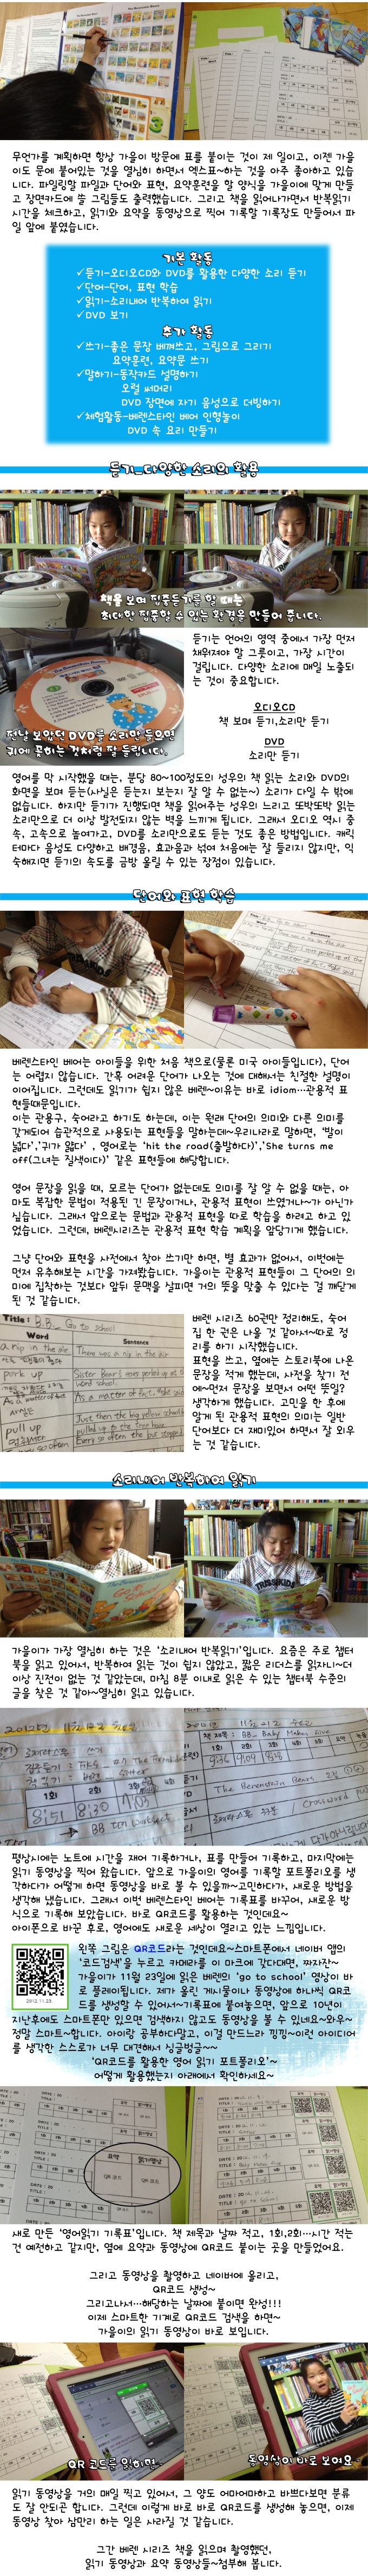 무언가를 계획하면 항상 가을이 방문에 표를 붙이는 것이 제 일이고, 이젠 가을
이도 문에 붙어있는 것을 열심히 하면서 엑스표~하는 것을 아주 좋아하고 있습
니다. 파일링할 파일과 단어와 표현, 요약훈련을 할 양식을 가을이에 맞게 만들
고 장면카드에 쓸 그림들도 출력했습니다. 그리고 책을 읽어나가면서 반복읽기
시간을 체크하고, 읽기와 요약을 동영상으로 찍어 기록할 기록장도 만들어서 파
일 앞에 붙였습니다.
기본 활동
✓듣기-오디오CD와 DVD를 활용한 다양한 소리 듣기
✓단어-단어, 표현 학습
✓읽기-소리내어 반복하여 읽기
✓DVD 보기
추가 활동
✓쓰기-좋은 문장 베껴쓰고, 그림으로 그리기
요약훈련, 요약문 쓰기
✓말하기-동작카드 설명하기
오럴 써머리
DVD 장면에 자기 음성으로 더빙하기
✓체험활동-베렌스타인 베어 인형놀이
DVD 속 요리 만들기
듣기_다양한 소리의 활용
책을 보며 집중듣기를 할 때는
최대한 집중할 수 있는 환경을 만들어 줍니다.
듣기는 언어의 영역 중에서 가장 먼저
채워져야 할 그릇이고, 가장 시간이
걸립니다. 다양한 소리에 매일 노출되
는 것이 중요합니다.
오디오CD
책 보며 듣기,소리만 듣기
DVD
소리만 듣기
전날 보았던 DVD를 소리만 들으면
귀에 꽂히는 것처럼 잘 들립니다.
영어를 막 시작했을 때는, 분당 80~100정도의 성우의 책 읽는 소리와 DVD의
화면을 보며 듣는(사실은 듣는지 보는지 잘 알 수 없는~) 소리가 다일 수 밖에
없습니다. 하지만 듣기가 진행되면 책을 읽어주는 성우의 느리고 또박또박 읽는
소리만으로 더 이상 발전되지 않는 벽을 느끼게 됩니다. 그래서 오디오 역시 중
속, 고속으로 높여가고, DVD를 소리만으로도 듣는 것도 좋은 방법입니다. 캐릭
터마다 음성도 다양하고 배경음, 효과음과 섞여 처음에는 잘 들리지 않지만, 익
숙해지면 듣기의 속도를 금방 올릴 수 있는 장점이 있습니다.
단어와 표현 학습
베렌스타인 베어는 아이들을 위한 처음 책으로(물론 미국 아이들입니다), 단어
는 어렵지 않습니다. 간혹 어려운 단어가 나오는 것에 대해서는 친절한 설명이
이어집니다. 그런데도 읽기가 쉽지 않은 베렌~이유는 바로 idiom…관용적 표
현들때문입니다.
이는 관용구, 숙어라고 하기도 하는데, 이는 원래 단어의 의미와 다른 의미를
갖게되어 습관적으로 사용되는 표현들을 말하는데~우리나라로 말하면, ‘발이
넓다’,’귀가 얇다’ , 영어로는 ‘hit the road(출발하다)’,’She turns me
off(그녀는 질색이다)’ 같은 표현들에 해당합니다.
영어 문장을 읽을 때, 모르는 단어가 없는데도 의미를 잘 알 수 없을 때는, 아
마도 복잡한 문법이 적용된 긴 문장이거나, 관용적 표현이 쓰였거나~가 아닌가
싶습니다. 그래서 앞으로는 문법과 관용적 표현을 따로 학습을 하려고 하고 있
었습니다. 그런데, 베렌시리즈는 관용적 표현 학습 계획을 앞당기게 했습니다.
그냥 단어와 표현을 사전에서 찾아 쓰기만 하면, 별 효과가 없어서, 이번에는
먼저 유추해보는 시간을 가져봤습니다. 가을이는 관용적 표현들이 그 단어의 의
미에 집착하는 것보다 앞뒤 문맥을 살피면 거의 뜻을 맞출 수 있다는 걸 깨닫게
된 것 같습니다.
Title : B.B_ Go to school
Word
Sentence
a nip in the air
There was a nip in the air.
perk up
pull up
베렌 시리즈 60권만 정리해도, 숙어
집 한 권은 나올 것 같아서~따로 정
리를 하기 시작했습니다.
표현을 쓰고, 옆에는 스토리북에 나온
문장을 적게 했는데, 사전을 찾기 전
에~먼저 문장을 보면서 어떤 뜻일?
생각하게 했습니다. 고민을 한 후에
알게 된 관용적 표현의 의미는 일반
단어보다 더 재미있어 하면서 잘 외우
는 것 같습니다.
소리내어 반복하여 읽기
가을이가 가장 열심히 하는 것은 ‘소리내어 반복읽기’입니다. 요즘은 주로 챕터
북을 읽고 있어서, 반복하여 읽는 것이 쉽지 않았고, 짧은 리더스를 읽자니~더
이상 진전이 없는 것 같았는데, 마침 8분 이내로 읽은 수 있는 챕터북 수준의
글을 찾은 것 같아~열심히 읽고 있습니다.
1회 2회 3회 4회
8:51 8:30 7:03
The Berenstein Bears
평상시에는 노트에 시간을 재어 기록하거나, 표를 만들어 기록하고, 마지막에는
읽기 동영상을 찍어 왔습니다. 앞으로 가을이의 영어를 기록할 포트폴리오를 생
각하다가 어떻게 하면 동영상을 바로 볼 수 있을까~고민하다가, 새로운 방법을
생각해 냈습니다. 그래서 이번 베렌스타인 베어는 기록표를 바꾸어, 새로운 방
식으로 기록해 보았습니다. 바로 QR코드를 활용하는 것인데요~
아이폰으로 바꾼 후로, 영어에도 새로운 세상이 열리고 있는 느낌입니다.
2012.11.23
왼쪽 그림은 QR코드라는 것인데요~스마트폰에서 네이버 앱의
‘코드검색’을 누르고 카메라를 이 마크에 갖다대면, 짜자잔~
가을이가 11월 23일에 읽은 베렌의 ‘go to school’ 영상이 바
로 플레이됩니다. 제가 올린 게시물이나 동영상에 하나씩 QR코
드를 생성할 수 있어서~기록표에 붙여놓으면, 앞으로 10년이
지난후에도 스마트폰만 있으면 검색하지 않고도 동영상을 볼 수 있네요~와우~
정말 스마트~합니다. 아이랑 공부하다말고, 이걸 만드느라 낑낑~이런 아이디어
를 생각한 스스로가 너무 대견해서 싱글벙글~~
‘QR코드를 활용한 영어 읽기 포트폴리오’~
어떻게 활용했는지 아래에서 확인하세요~
요약 읽기영상
QR 코드 QR 코드
새로 만든 ‘영어읽기 기록표’입니다. 책 제목과 날짜 적고, 1회,2회…시간 적는
건 예전하고 같지만, 옆에 요약과 동영상에 QR코드 붙이는 곳을 만들었어요.
그리고 동영상을 촬영하고 네이버에 올리고,
QR코드 생성~
그리고나서…해당하는 날짜에 붙이면 완성!!!
이제 스마트한 기계로 QR코드 검색을 하면~
가을이의 읽기 동영상이 바로 보입니다.
QR 코드를 읽히면~
동영상이 바로 보여요~
읽기 동영상을 거의 매일 찍고 있어서, 그 양도 어마어마하고 바쁘다보면 분류
도 잘 안되곤 합니다. 그런데 이렇게 바로 바로 QR코드를 생성해 놓으면, 이제
동영상 찾아 삼만리 하는 일은 사라질 것 같습니다.
그간 베렌 시리즈 책을 읽으며 촬영했던,
읽기 동영상과 요약 동영상들~첨부해 봅니다.